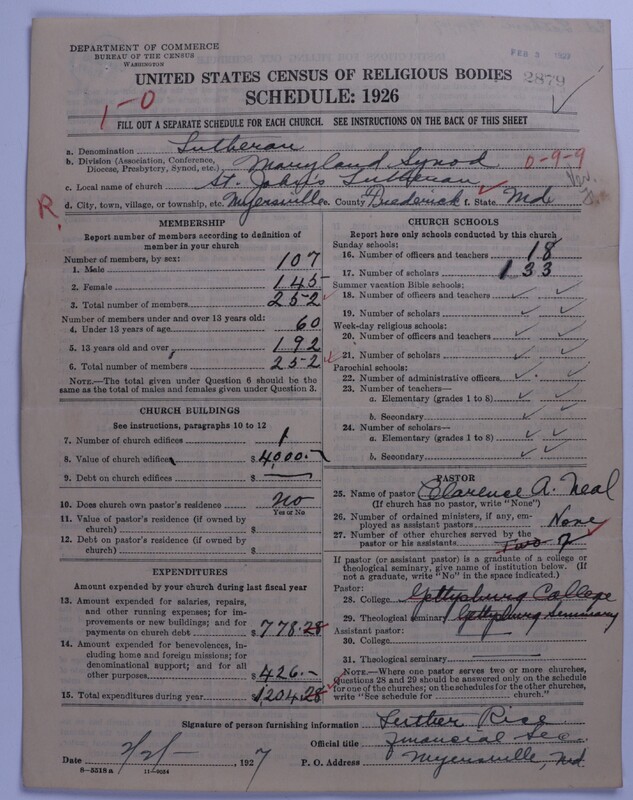 DEPARTMENT OF COMMERCE
BUREAU OF THE CENSUS
WASHINGTON
FEB 3 1927
2879
UNITED STATES CENSUS OF RELIGIOUS BODIES
SCHEDULE: 1926
1-0
FILL OUT A SEPARATE SCHEDULE FOR EACH CHURCH. SEE INSTRUCTIONS ON THE BACK OF THIS SHEET
a. Denomination Lutheran
b. Division (Association, Conference, Diocese, Presbytery, Synod, etc.) Maryland Synod 0-9-9
c. Local name of church St. John's Lutheran
R. d. City, town, village, or township, etc. Myersville e. County Frederick f. State Md
MEMBERSHIP
Report number of members according to definition of
member in your church
Number of members, by sex:
1. Male 107
2. Female 145
3. Total number of members 252
Number of members under and over 13 years old:
4. Under 13 years of age 60
5. 13 years old and over 192
6. Total number of members 252
NOTE.—The total given under Question 6 should be
same as the total of males and females given under Question 3.
CHURCH BUILDINGS
See instructions, paragraphs 10 to 12
7. Number of church edifices 1
8. Value of church edifices $ 4000.—
9. Debt on church edifices $ —
10. Does church own pastor's residence No
Yes or No
11. Value of pastor's residence (if owned by
church) $
12. Debt on pastor's residence (if owned by
church) $
EXPENDITURES
Amount expended by your church during last fiscal year
13. Amount expended for salaries, repairs,
and other running expenses; for im-
provements or new buildings; and for
payments on church debt $ 778.28
14. Amount expended for benevolences, in-
cluding home and foreign missions; for
denominational support; and for all
other purposes $ 426.—
15. Total expenditures during year $ 1204.28
CHURCH SCHOOLS
Report here only schools conducted by this church
Sunday schools:
16. Number of officers and teachers 18
17. Number of scholars 133
Summer vacation Bible schools:
18. Number of officers and teachers
19. Number of scholars
Week-day religious schools:
20. Number of officers and teachers
21. Number of scholars
Parochial schools:
22. Number of administrative officers
23. Number of teachers—
a. Elementary (grades 1 to 8)
b. Secondary
24. Number of scholars—
a. Elementary (grades 1 to 8)
b. Secondary
PASTOR
25. Name of pastor Clarence A. Neal
(If church has no pastor, write "None")
26. Number of ordained ministers, if any, em-
ployed as assistant pastors None
27. Number of other churches served by the
pastor or his assistants Two 2
If pastor (or assistant pastor) is a graduate of a college or
theological seminary, give name of institution below. (If
not a graduate, write "No" in the space indicated.)
Pastor:
28. College Gettysburg College
29. Theological seminary Gettysburg Seminary
Assistant pastor:
30. College
31. Theological seminary
NOTE.—Where one pastor serves two or more churches,
Questions 28 and 29 should be answered only on the schedule
for one of the churches; on the schedules for the other churches,
write "See schedule for church."
Signature of person furnishing information Luther Rice
Official title Financial Sec
Date 2/2/ , 1927 P. O. Address Myersville, Md.
8-5518 a 11-9024